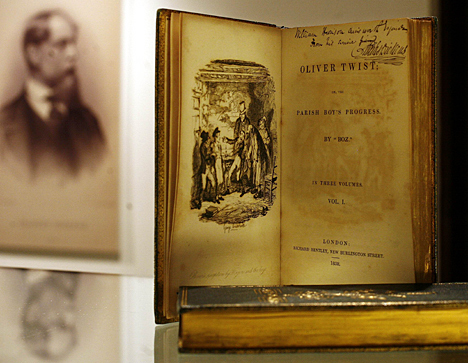 William Harrison Ainsworth Esquire
From his friend
Charles Dickens
OLIVER TWIST;
OR, THE
PARISH BOY'S PROGRESS.
BY "BOZ."
IN THREE VOLUMES.
VOL. I.
LONDON:
RICHARD BENTLEY, NEW BURLINGTON STREET.
1838.